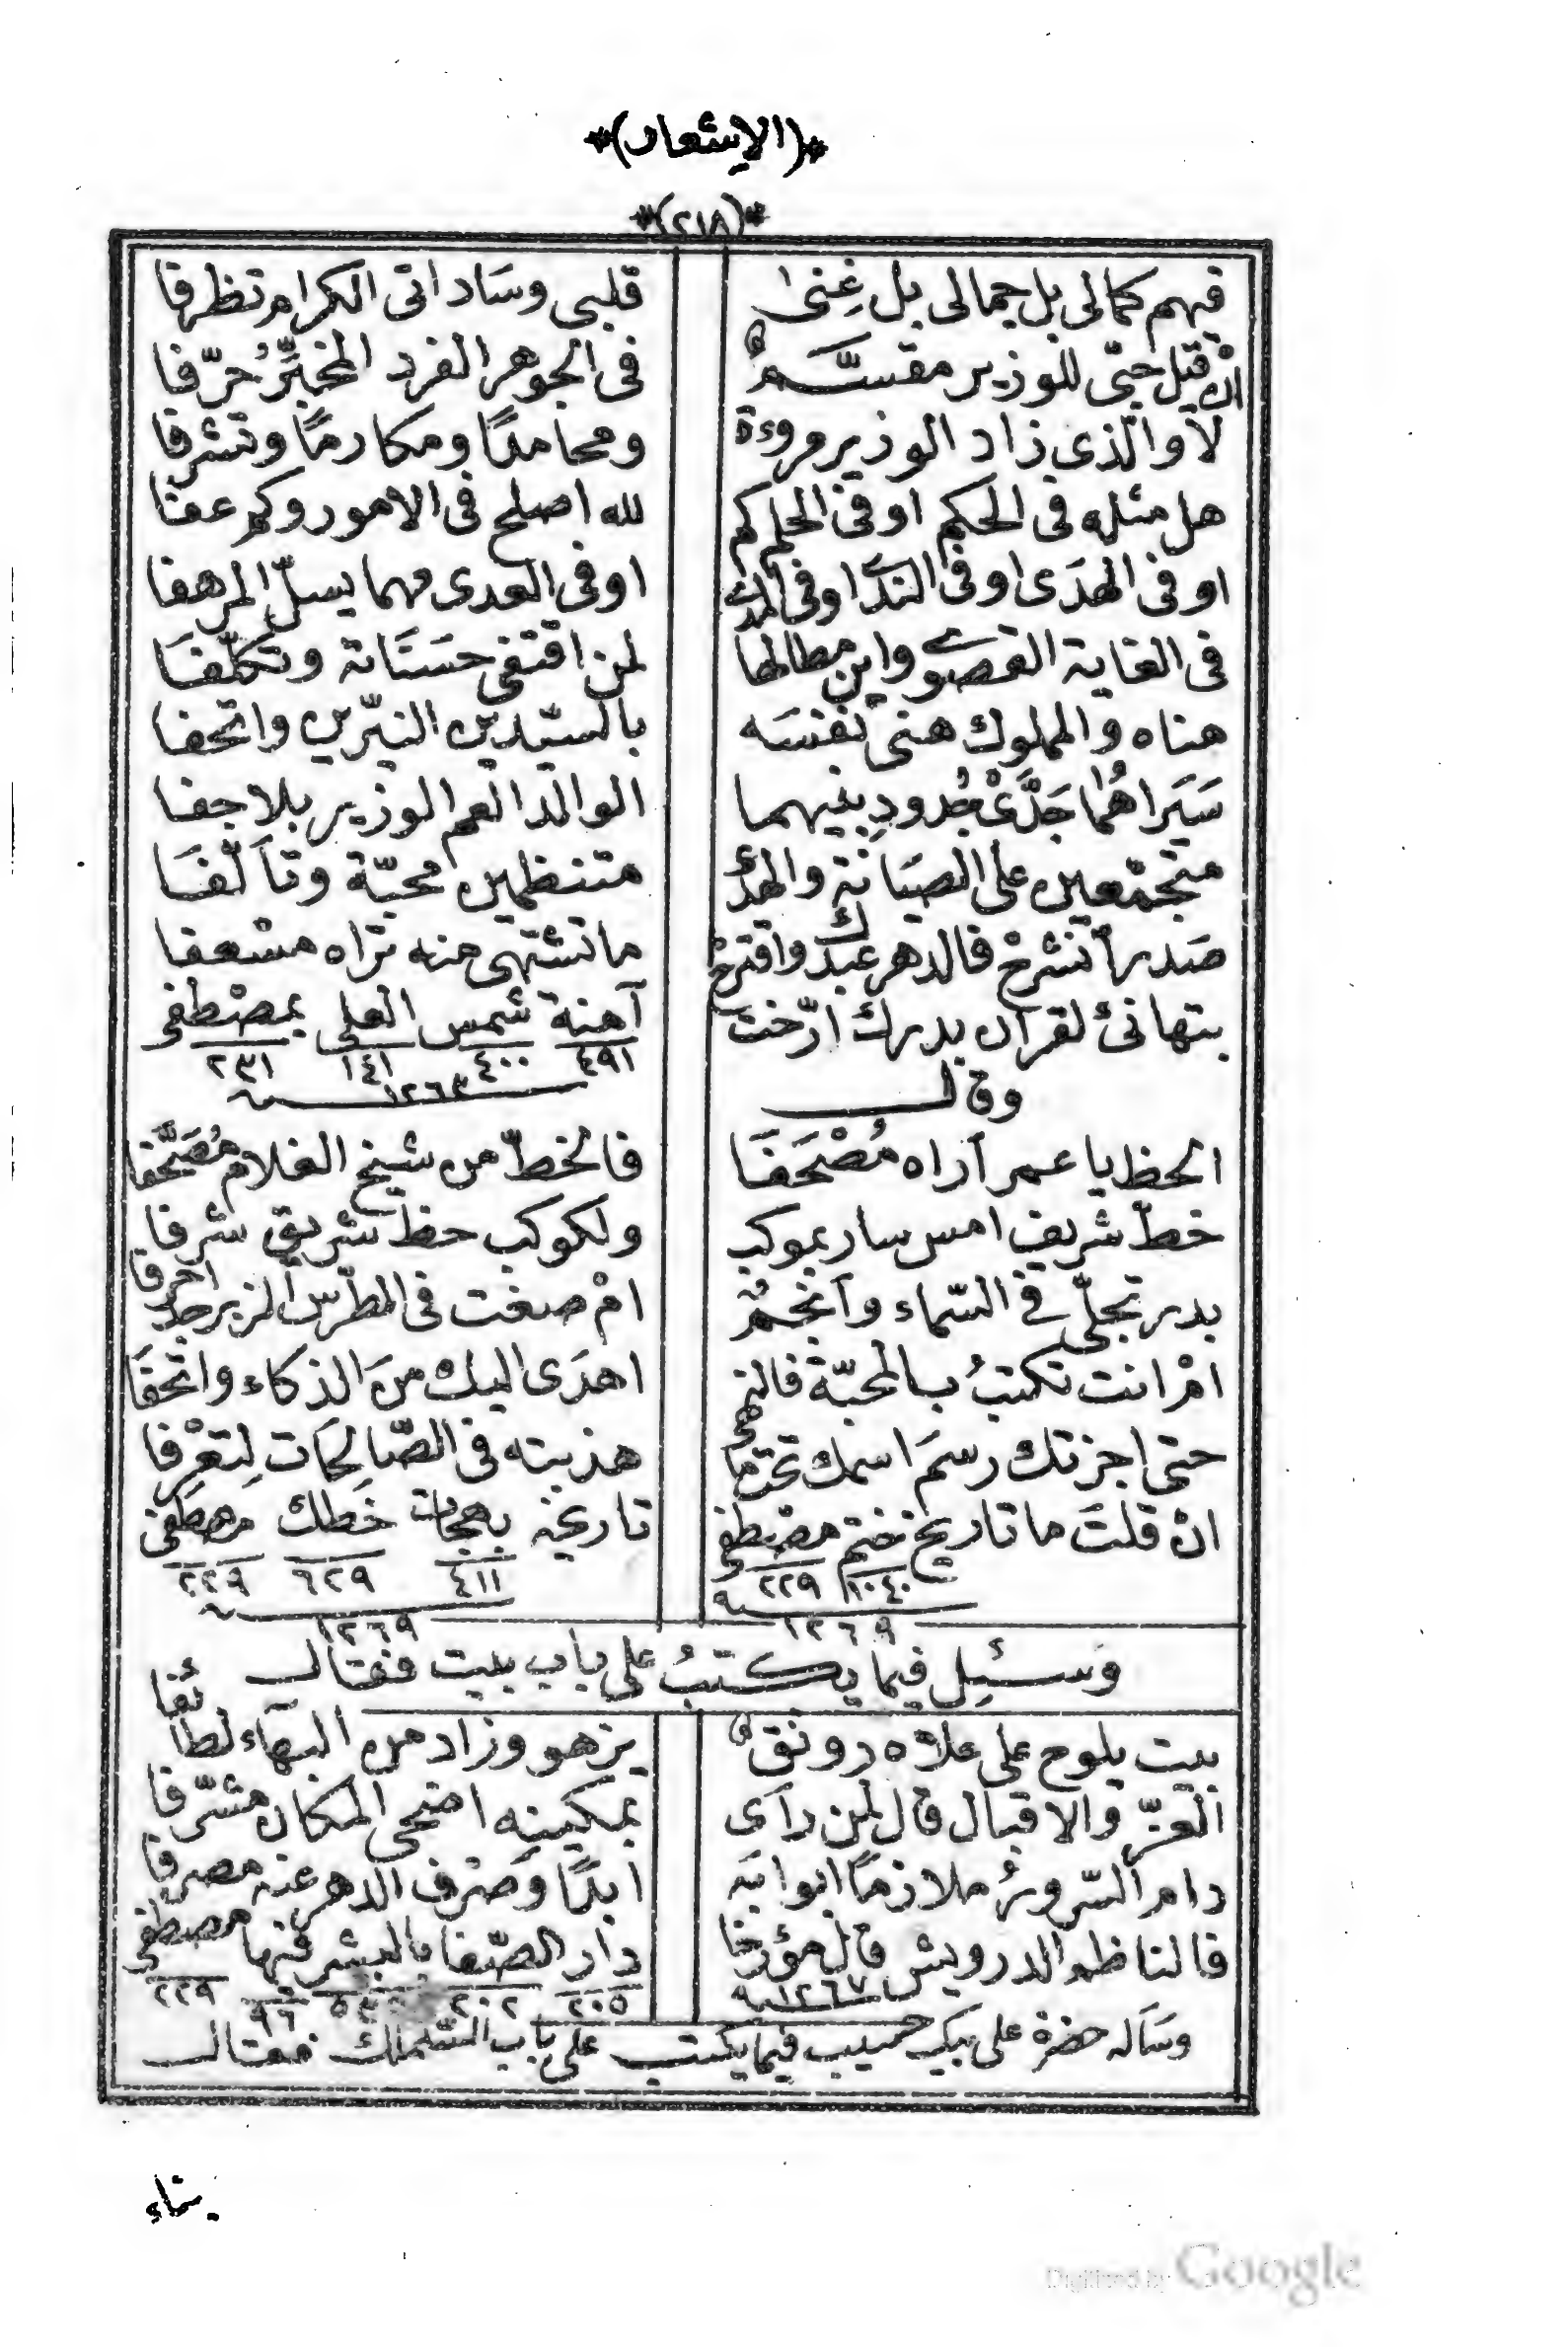 *(الإشعار)*
*(٢١٨)*
فيهم كمالى بل جمالى بل غِنىٰ قلبى وسَاداتى الكرام تظرفا
انْ قيل حبّى للوزير مقسَّمٌ فى الجوهر الفرد المخيَّرُ حرّفا
لا والّذى زاد الوزير مروءة ومحامدًا ومكارمًا وتشرفا
هل مثله فى الحكم او فى الحلم كم لله اصلح فى الامور وكم عفا
او فى الهدَى او فى الندَى او فى المدى او فى العدى مهما يسلّ المرهفا
فى الغاية القصوى واين مطالها لمن اقتفى حسَنَاته وتكلّفَا
هناه والمملوك هنى نفسَه بالسيّدين النيّرين واتحفا
سَيَراهُما جَدَّىْ جُدودِ بنيهما الوالد العم الوزير بلا جفا
متجمّعين على الصيَانة والهدى متنظمين محبّة وتآلفَا
صَدرًا نشرحْ فالدهر عبدك واقترحْ ما تشتهى منه تراه مسْعفا
بتهانئ لقران بدرك ارّختْ آهنة شمس العلى بمصْطفى
٤٩١ ٤٠٠ ١٤١ ٢٣١
١٢٦٣
وقال
الحظ يا عمر آراه مُصْحَفَا فالخطّ من شيخ الغلام مُصَحَّفا
خطّ شريف امس سار بموكب ولكوكب حظ شريق شرفا
بدر تجلّى فى السّماء وآنجم امْ صغت فى الطّرس الزبرجد احرفا
امْ انت تكتبُ بالمحبّة فالنهى اهدَى اليك منَ الذكاء واتحفَا
حتى اجزتك رسمَ اسمك تحت ما هذبته فى الصّالِحَات لِتعْرفا
انْ قلتَ ما تاريخ ختم مصْطفى تاريخه بهجات خَطك مصطفى
١٠٤٠ ٢٢٩ ٤١١ ٦٢٩ ٢٢٩
١٢٦٩ ١٢٦٩
وَسئِل فيما يكتبُ على باب بيت فقال
بيت يلوح على علاه رونقٌ يزهو وزاد من البهآء لطائفا
العزّ والاقبال قال لمن رآى بمكينِه اضحى المكان مشرّفا
دام السّرورُ ملازمًا ابوابَه ابدًا وَصَرف الدهر عنه مصرفا
فالناظم الدرويش قال مؤرخا دار الصّفا بالبشر فيها مصطفى
١٢٦٧ ٢٠٥ ٢٠٢ ٩٦ ٢٢٩
وسَأله حضرة على بيك حسيب فيما يكتب على باب السَّلاملك فقال
Digitized by Google